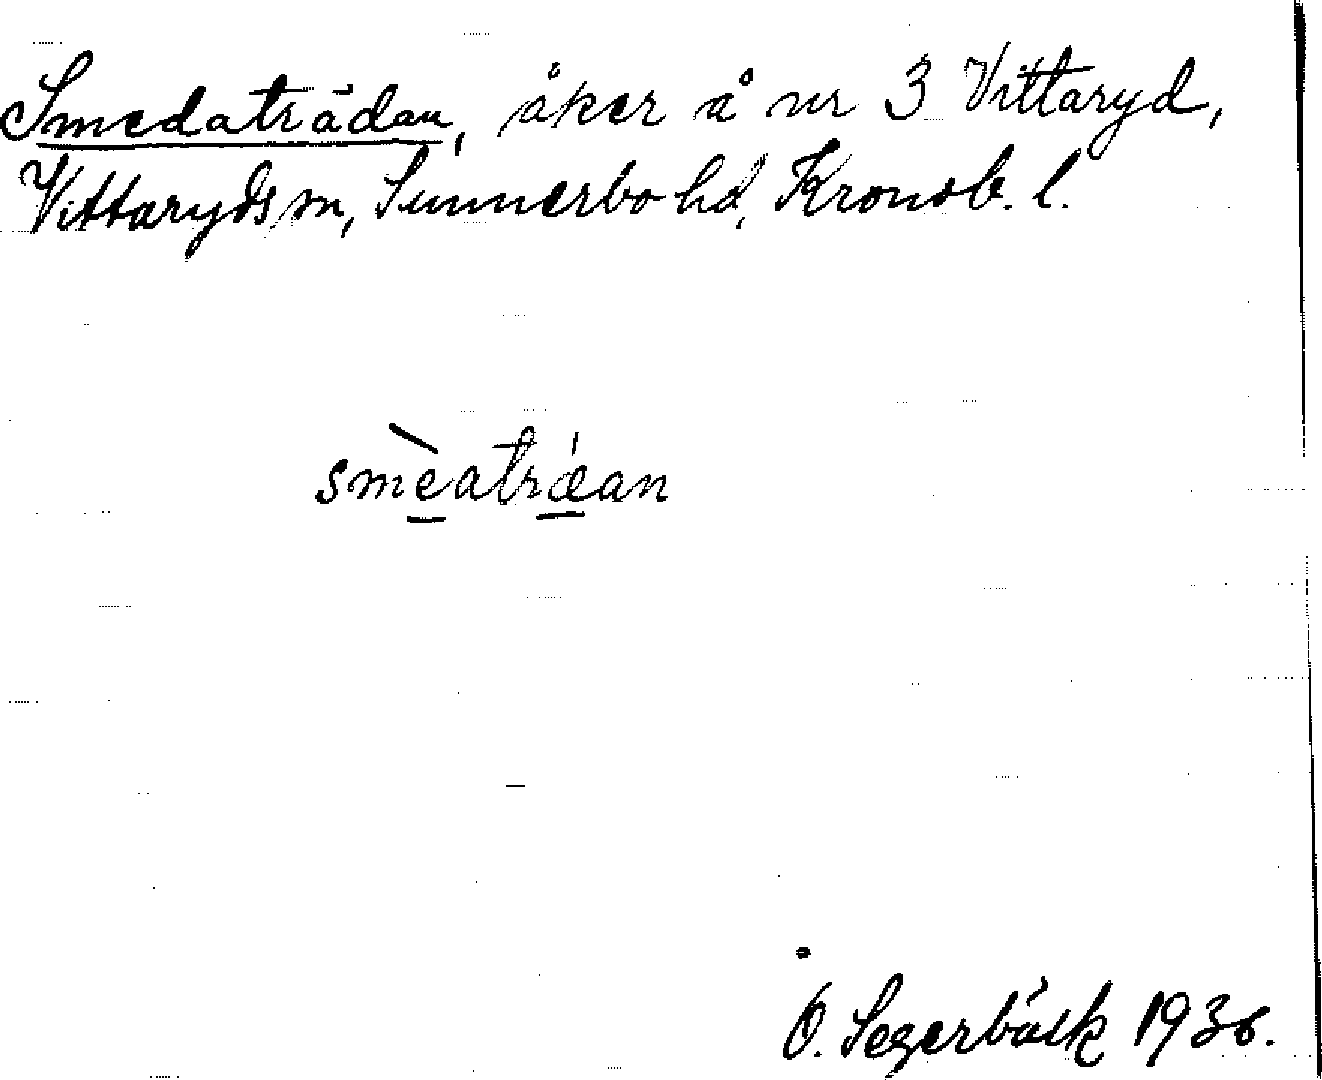 Smedaträdan, åker å nr 3 Vittaryd,
Vittaryds sn, Sunnerbo hd, Kronob. l.
smèatrǽan
O. Segerbäck 1936.